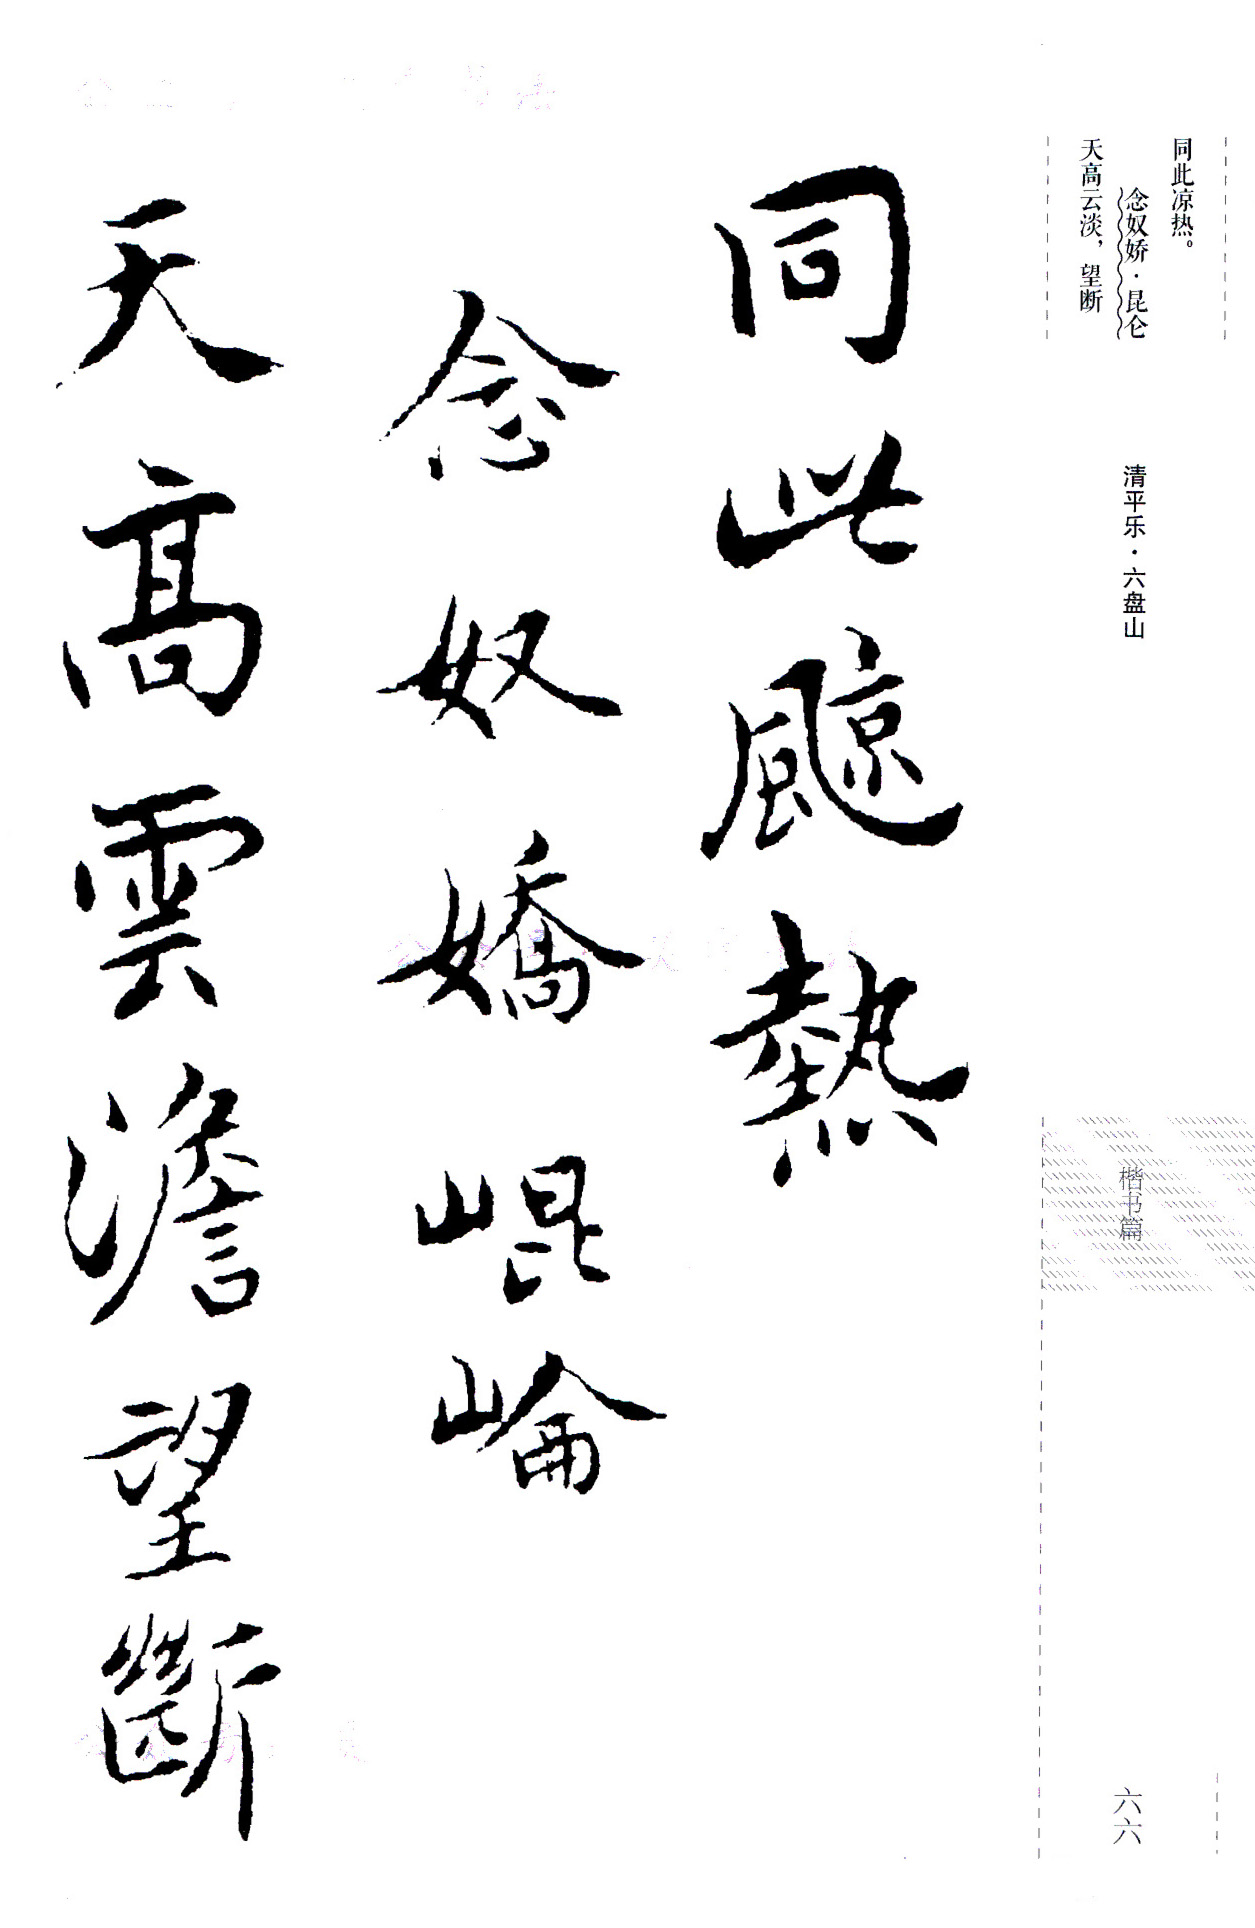 同此凉热。
念奴娇·昆仑
天高云淡，望断
清平乐·六盘山
楷书篇
六六
同此飈熱
念奴嬌崐崘
天高雲澹望斷